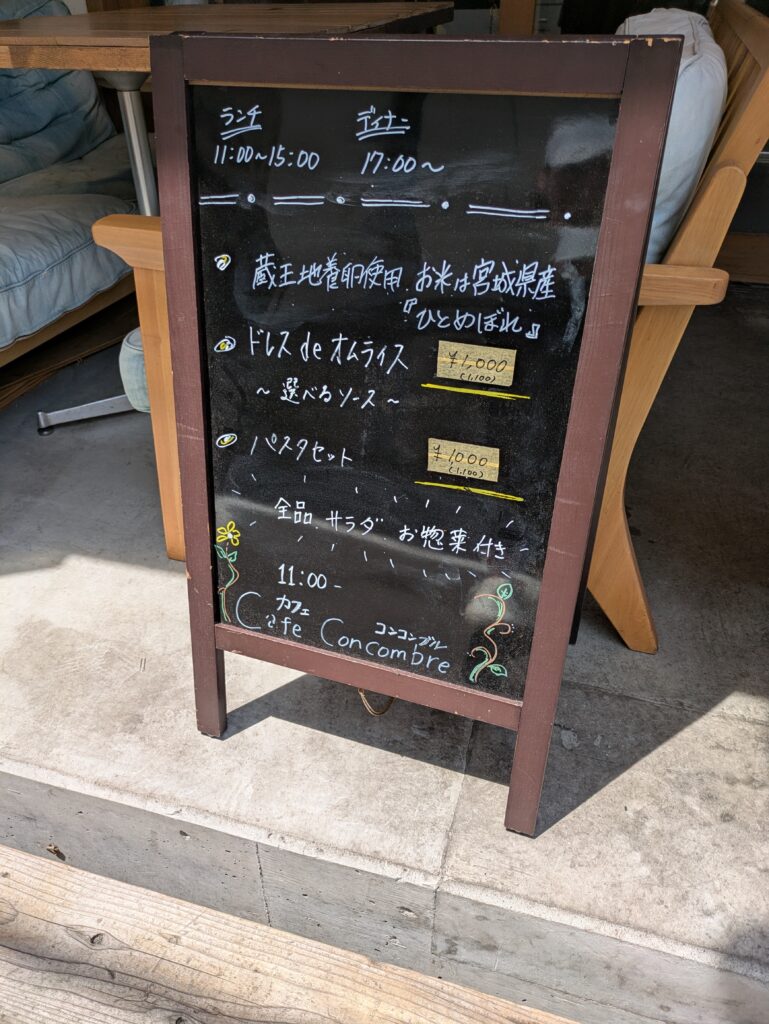 ランチ ディナー
11:00~15:00 17:00~
蔵王地養卵使用 お米は宮城県産
『ひとめぼれ』
ドレス de オムライス ¥1,000
(1,100)
~ 選べるソース ~
パスタセット ¥1,000
(1,100)
全品、サラダ お惣菜付き
11:00-
カフェ コンコンブル
Cafe Concombre